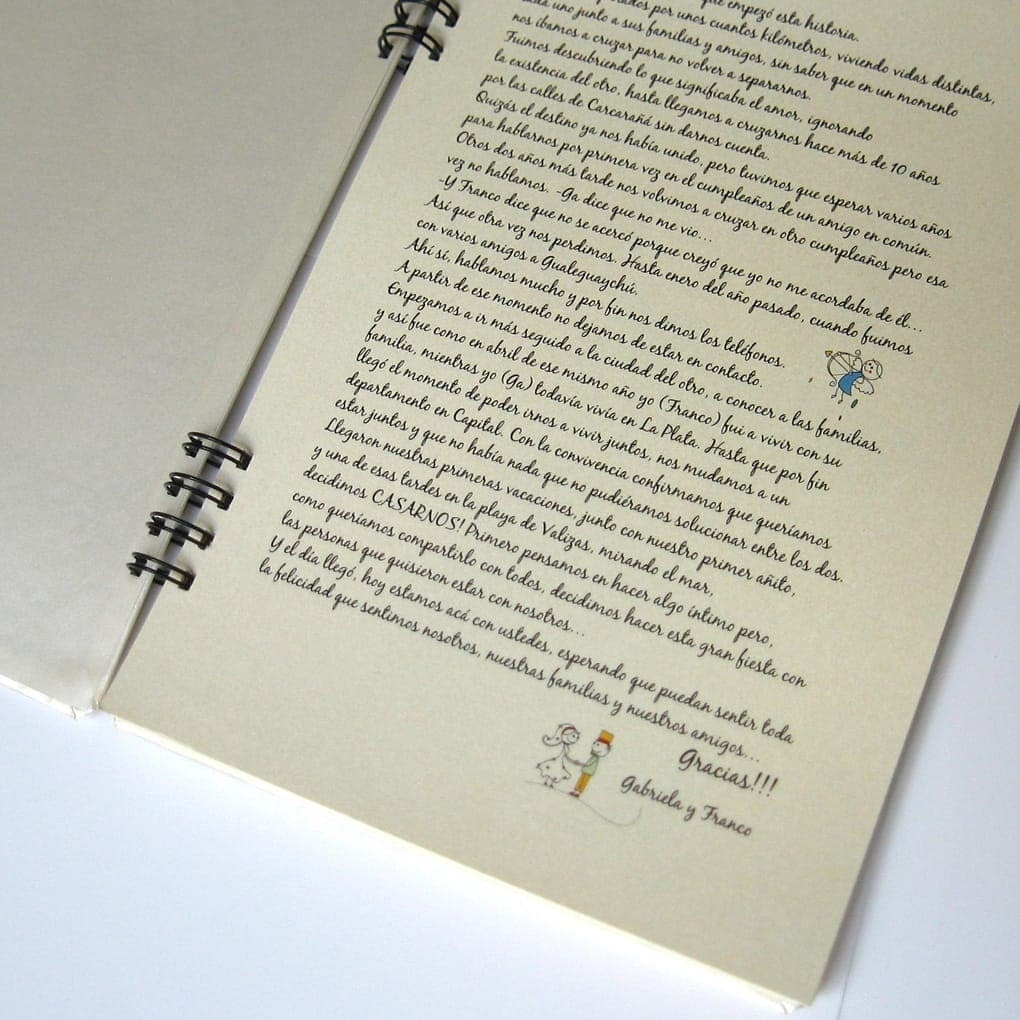 que empezó esta historia.
por unos cuantos kilómetros, viviendo vidas distintas,
uno junto a sus familias y amigos, sin saber que en un momento
nos íbamos a cruzar para no volver a separarnos.
Fuimos descubriendo lo que significaba el amor, ignorando
la existencia del otro, hasta llegamos a cruzarnos hace más de 10 años
por las calles de Carcarañá sin darnos cuenta.
Quizás el destino ya nos había unido, pero tuvimos que esperar varios años
para hablarnos por primera vez en el cumpleaños de un amigo en común.
Otros dos años más tarde nos volvimos a cruzar en otro cumpleaños pero esa
vez no hablamos. -Ga dice que no me vio...
-Y Franco dice que no se acercó porque creyó que yo no me acordaba de él...
Así que otra vez nos perdimos. Hasta enero del año pasado, cuando fuimos
con varios amigos a Gualeguaychú.
Ahí sí, hablamos mucho y por fin nos dimos los teléfonos.
A partir de ese momento no dejamos de estar en contacto.
Empezamos a ir más seguido a la ciudad del otro, a conocer a las familias,
y así fue como en abril de ese mismo año yo (Franco) fui a vivir con su
familia, mientras yo (Ga) todavía vivía en La Plata. Hasta que por fin
llegó el momento de poder irnos a vivir juntos, nos mudamos a un
departamento en Capital. Con la convivencia confirmamos que queríamos
estar juntos y que no había nada que no pudiéramos solucionar entre los dos.
Llegaron nuestras primeras vacaciones, junto con nuestro primer añito,
y una de esas tardes en la playa de Valizas, mirando el mar,
decidimos CASARNOS! Primero pensamos en hacer algo íntimo pero,
como queríamos compartirlo con todos, decidimos hacer esta gran fiesta con
las personas que quisieron estar con nosotros...
Y el día llegó, hoy estamos acá con ustedes, esperando que puedan sentir toda
la felicidad que sentimos nosotros, nuestras familias y nuestros amigos...
Gracias!!!
Gabriela y Franco